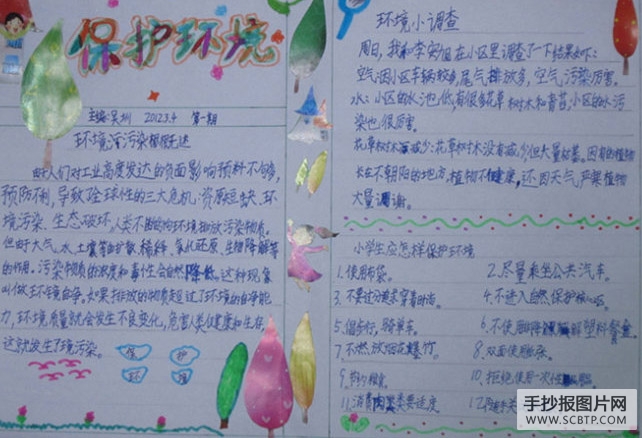 保护环境
主编:吴圳 2012.3.4 第一期
环境污染概述
由于人们对工业高度发达的负面影响预料不够,
预防不利,导致全球性的三大危机:资源短缺、环
境污染、生态破坏,人类不断的向环境排放污染物质。
但由于大气、水、土壤等的扩散、稀释、氧化还原、生物降解等
的作用。污染物质的浓度和毒性会自然降低。这种现象
叫做环境自净,如果排放的物质超过了环境的自净能
力,环境质量就会发生不良变化,危害人类健康和生存,
这就发生了环境污染。
保 护
环 境
环境小调查
周日,我和李实恒在小区里调查了一下结果如下:
空气:因小区车辆较多,尾气排放多,空气污染厉害。
水:小区的水池,低,有很多花草树木和青苔,小区的水污
染也很厉害。
花草树木减少:花草树木没有减少,但大量枯萎。因有的植物
长在不朝阳的地方,植物不健康,还因天气严寒植物
大量凋谢。
小学生应怎样保护环境
1.使用布袋。 2.尽量乘坐公共汽车。
3.不要过分追求穿着时尚。 4.不进入自然保护核心区。
5.倡步行,骑单车。 6.不使用非降解塑料餐盒。
7.不燃放烟花爆竹。 8.双面使用纸张。
9.节约粮食 10.拒绝使用一次性
11.消费肉类要适度 12.随手关
手抄报图片网
WWW.SCBTP.COM